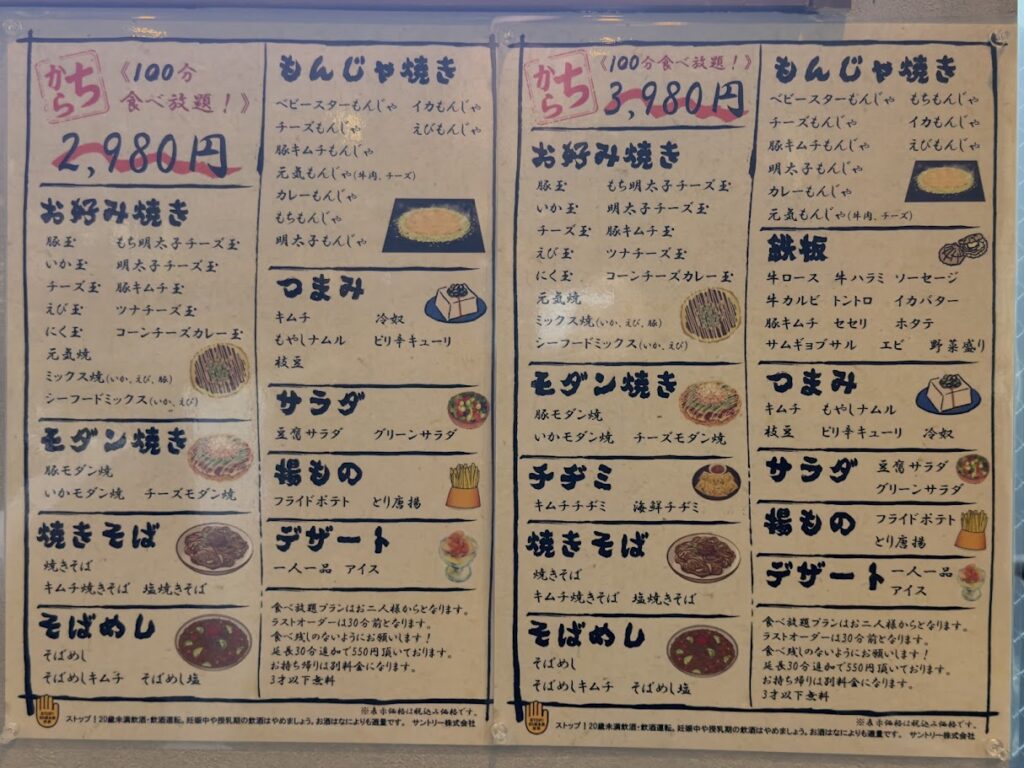 ちから
《100分
食べ放題！》
2,980円
お好み焼き
豚玉 もち明太子チーズ玉
いか玉 明太子チーズ玉
チーズ玉 豚キムチ玉
えび玉 ツナチーズ玉
にく玉 コーンチーズカレー玉
元気焼
ミックス焼(いか、えび、豚)
シーフードミックス(いか、えび)
モダン焼き
豚モダン焼
いかモダン焼 チーズモダン焼
焼きそば
焼きそば
キムチ焼きそば 塩焼きそば
そばめし
そばめし
そばめしキムチ そばめし塩
もんじゃ焼き
ベビースターもんじゃ イカもんじゃ
チーズもんじゃ えびもんじゃ
豚キムチもんじゃ
元気もんじゃ(牛肉、チーズ)
カレーもんじゃ
もちもんじゃ
明太子もんじゃ
つまみ
キムチ 冷奴
もやしナムル ピリ辛キューリ
枝豆
サラダ
豆腐サラダ グリーンサラダ
揚もの
フライドポテト とり唐揚
デザート
一人一品 アイス
食べ放題プランはお二人様からとなります。
ラストオーダーは30分前となります。
食べ残しのないようにお願いします！
延長30分追加で550円頂いております。
お持ち帰りは別料金になります。
3才以下無料
※表示価格は税込み価格です。
ストップ！20歳未満飲酒・飲酒運転。妊娠中や授乳期の飲酒はやめましょう。お酒はなによりも適量です。 サントリー株式会社
ちから
《100分食べ放題！》
3,980円
お好み焼き
豚玉 もち明太子チーズ玉
いか玉 明太子チーズ玉
チーズ玉 豚キムチ玉
えび玉 ツナチーズ玉
にく玉 コーンチーズカレー玉
元気焼
ミックス焼(いか、えび、豚)
シーフードミックス(いか、えび)
モダン焼き
豚モダン焼
いかモダン焼 チーズモダン焼
チヂミ
キムチチヂミ 海鮮チヂミ
焼きそば
焼きそば
キムチ焼きそば 塩焼きそば
そばめし
そばめし
そばめしキムチ そばめし塩
もんじゃ焼き
ベビースターもんじゃ もちもんじゃ
チーズもんじゃ イカもんじゃ
豚キムチもんじゃ えびもんじゃ
明太子もんじゃ
カレーもんじゃ
元気もんじゃ(牛肉、チーズ)
鉄板
牛ロース 牛ハラミ ソーセージ
牛カルビ トントロ イカバター
豚キムチ セセリ ホタテ
サムギョプサル エビ 野菜盛り
つまみ
キムチ もやしナムル
枝豆 ピリ辛キューリ 冷奴
サラダ
豆腐サラダ
グリーンサラダ
揚もの
フライドポテト
とり唐揚
デザート
一人一品
アイス
食べ放題プランはお二人様からとなります。
ラストオーダーは30分前となります。
食べ残しのないようにお願いします！
延長30分追加で550円頂いております。
お持ち帰りは別料金になります。
3才以下無料
※表示価格は税込み価格です。
ストップ！20歳未満飲酒・飲酒運転。妊娠中や授乳期の飲酒はやめましょう。お酒はなによりも適量です。 サントリー株式会社